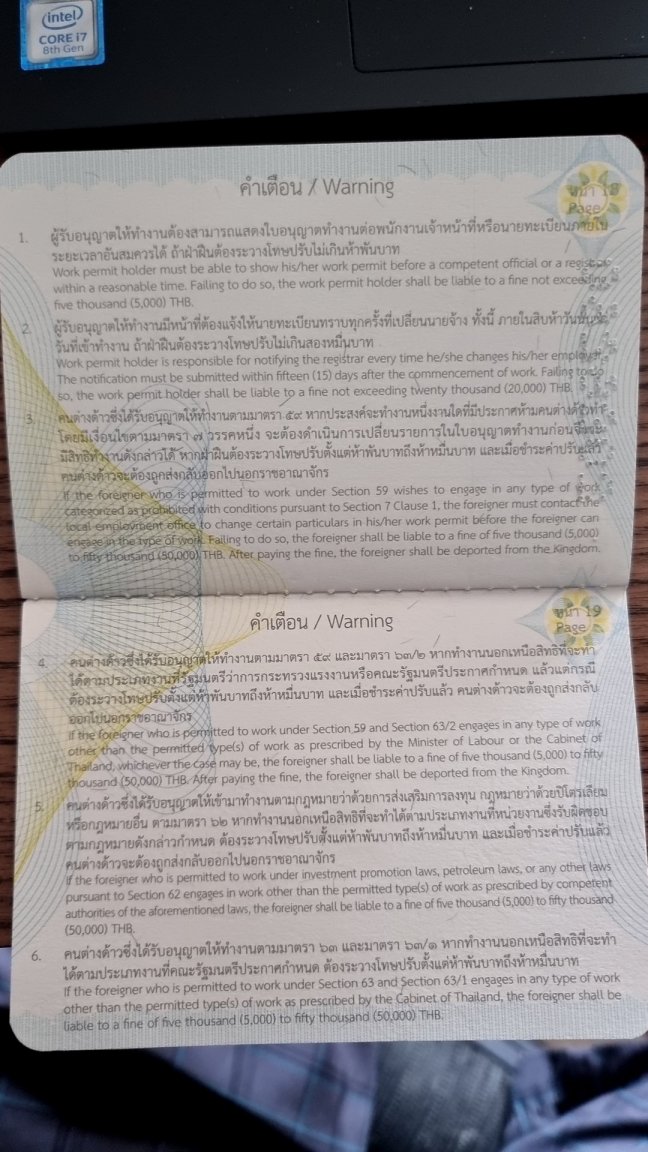 intel
CORE i7
8th Gen
คำเตือน / Warning
หน้า 18
Page
1. ผู้รับอนุญาตให้ทำงานต้องสามารถแสดงใบอนุญาตทำงานต่อพนักงานเจ้าหน้าที่หรือนายทะเบียนภายใน
ระยะเวลาอันสมควรได้ ถ้าฝ่าฝืนต้องระวางโทษปรับไม่เกินห้าพันบาท
Work permit holder must be able to show his/her work permit before a competent official or a registrar
within a reasonable time. Failing to do so, the work permit holder shall be liable to a fine not exceeding
five thousand (5,000) THB.
2. ผู้รับอนุญาตให้ทำงานมีหน้าที่ต้องแจ้งให้นายทะเบียนทราบทุกครั้งที่เปลี่ยนนายจ้าง ทั้งนี้ ภายในสิบห้าวันนับแต่
วันที่เข้าทำงาน ถ้าฝ่าฝืนต้องระวางโทษปรับไม่เกินสองหมื่นบาท
Work permit holder is responsible for notifying the registrar every time he/she changes his/her employer.
The notification must be submitted within fifteen (15) days after the commencement of work. Failing to do
so, the work permit holder shall be liable to a fine not exceeding twenty thousand (20,000) THB.
3. คนต่างด้าวซึ่งได้รับอนุญาตให้ทำงานตามมาตรา ๕๙ หากประสงค์จะทำงานหนึ่งงานใดที่มีประกาศห้ามคนต่างด้าวทำ
โดยมีเงื่อนไขตามมาตรา ๗ วรรคหนึ่ง จะต้องดำเนินการเปลี่ยนรายการในใบอนุญาตทำงานก่อนจึงจะ
มีสิทธิทำงานดังกล่าวได้ หากฝ่าฝืนต้องระวางโทษปรับตั้งแต่ห้าพันบาทถึงห้าหมื่นบาท และเมื่อชำระค่าปรับแล้ว
คนต่างด้าวจะต้องถูกส่งกลับออกไปนอกราชอาณาจักร
If the foreigner who is permitted to work under Section 59 wishes to engage in any type of work
categorized as prohibited with conditions pursuant to Section 7 Clause 1, the foreigner must contact the
local employment office to change certain particulars in his/her work permit before the foreigner can
engage in the type of work. Failing to do so, the foreigner shall be liable to a fine of five thousand (5,000)
to fifty thousand (50,000) THB. After paying the fine, the foreigner shall be deported from the Kingdom.
คำเตือน / Warning
หน้า 19
Page
4. คนต่างด้าวซึ่งได้รับอนุญาตให้ทำงานตามมาตรา ๕๙ และมาตรา ๖๓/๒ หากทำงานนอกเหนือสิทธิที่จะทำ
ได้ตามประเภทงานที่รัฐมนตรีว่าการกระทรวงแรงงานหรือคณะรัฐมนตรีประกาศกำหนด แล้วแต่กรณี
ต้องระวางโทษปรับตั้งแต่ห้าพันบาทถึงห้าหมื่นบาท และเมื่อชำระค่าปรับแล้ว คนต่างด้าวจะต้องถูกส่งกลับ
ออกไปนอกราชอาณาจักร
If the foreigner who is permitted to work under Section 59 and Section 63/2 engages in any type of work
other than the permitted type(s) of work as prescribed by the Minister of Labour or the Cabinet of
Thailand, whichever the case may be, the foreigner shall be liable to a fine of five thousand (5,000) to fifty
thousand (50,000) THB. After paying the fine, the foreigner shall be deported from the Kingdom.
5. คนต่างด้าวซึ่งได้รับอนุญาตให้เข้ามาทำงานตามกฎหมายว่าด้วยการส่งเสริมการลงทุน กฎหมายว่าด้วยปิโตรเลียม
หรือกฎหมายอื่น ตามมาตรา ๖๒ หากทำงานนอกเหนือสิทธิที่จะทำได้ตามประเภทงานที่หน่วยงานซึ่งรับผิดชอบ
ตามกฎหมายดังกล่าวกำหนด ต้องระวางโทษปรับตั้งแต่ห้าพันบาทถึงห้าหมื่นบาท และเมื่อชำระค่าปรับแล้ว
คนต่างด้าวจะต้องถูกส่งกลับออกไปนอกราชอาณาจักร
If the foreigner who is permitted to work under investment promotion laws, petroleum laws, or any other laws
pursuant to Section 62 engages in work other than the permitted type(s) of work as prescribed by competent
authorities of the aforementioned laws, the foreigner shall be liable to a fine of five thousand (5,000) to fifty thousand
(50,000) THB.
6. คนต่างด้าวซึ่งได้รับอนุญาตให้ทำงานตามมาตรา ๖๓ และมาตรา ๖๓/๑ หากทำงานนอกเหนือสิทธิที่จะทำ
ได้ตามประเภทงานที่คณะรัฐมนตรีประกาศกำหนด ต้องระวางโทษปรับตั้งแต่ห้าพันบาทถึงห้าหมื่นบาท
If the foreigner who is permitted to work under Section 63 and Section 63/1 engages in any type of work
other than the permitted type(s) of work as prescribed by the Cabinet of Thailand, the foreigner shall be
liable to a fine of five thousand (5,000) to fifty thousand (50,000) THB.